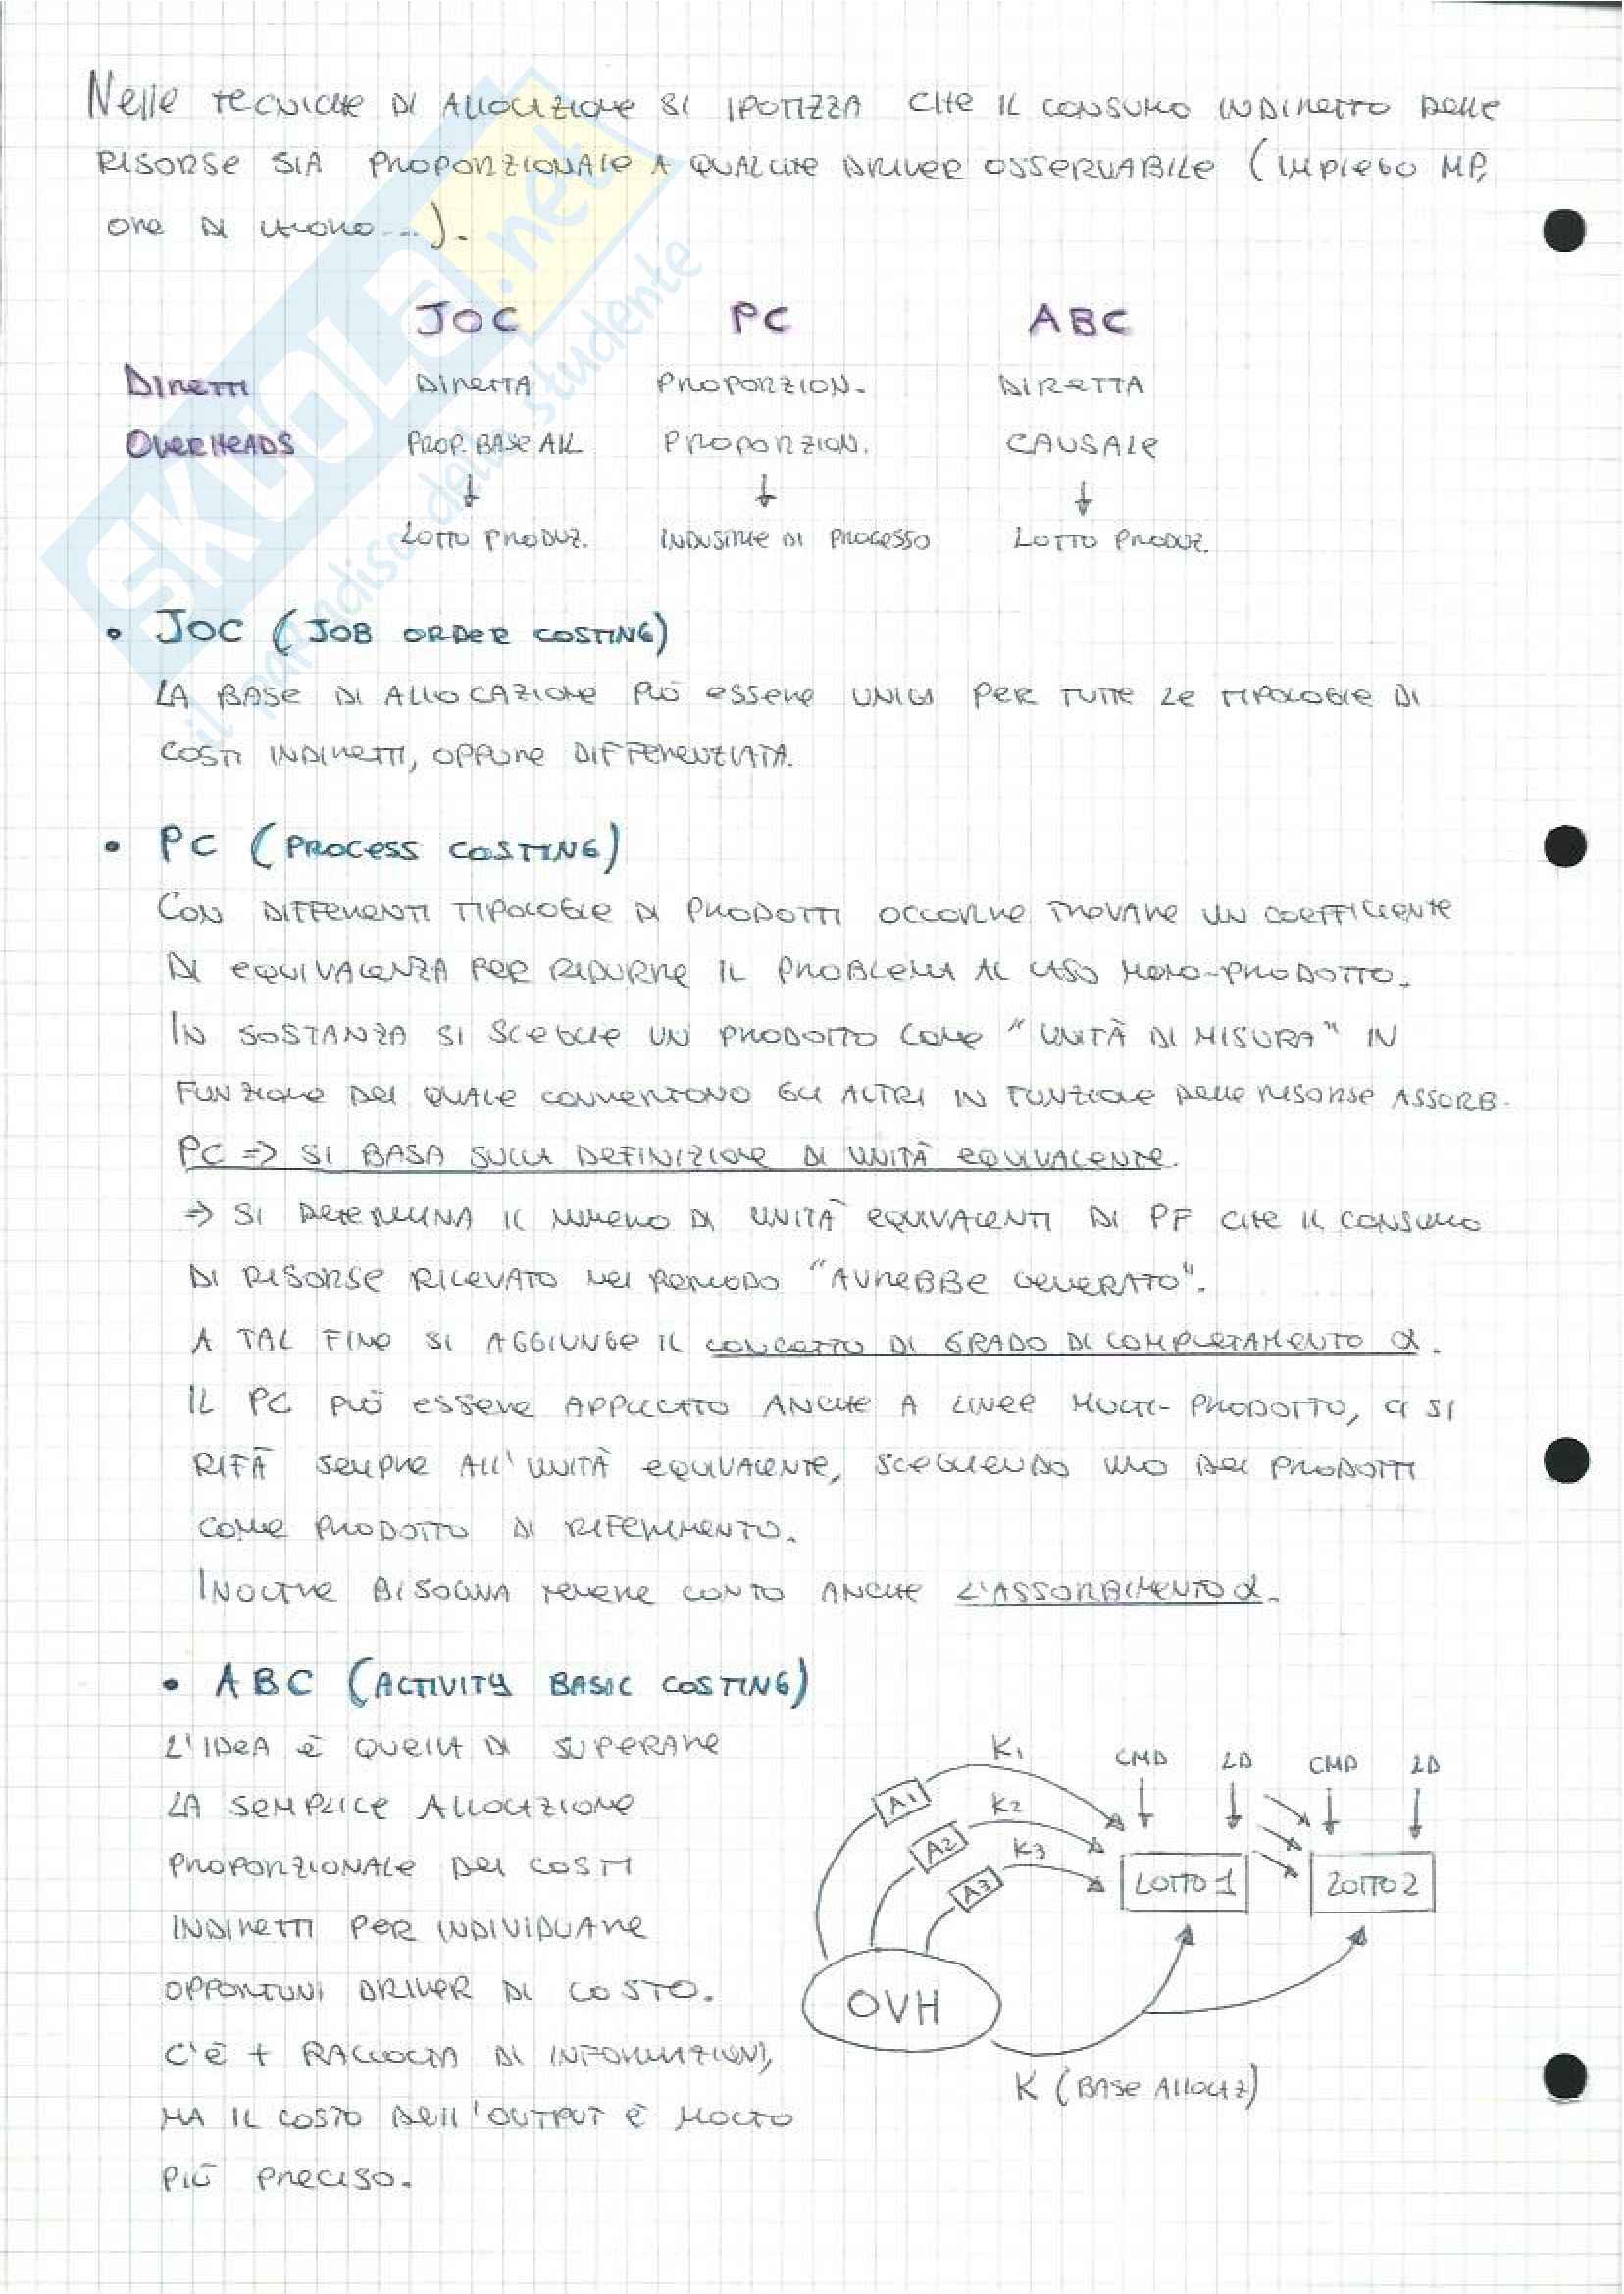 Nelle tecniche di allocazione si ipotizza che il consumo indiretto delle
risorse sia proporzionale a qualche driver osservabile (impiego MP,
ore di lavoro...).
JOC PC ABC
Diretti Diretta Proporzion. Diretta
Overheads Prop. base all. Proporzion. Causale
↓ ↓ ↓
Lotto produz. Industrie di processo Lotto produz.
• JOC (Job Order Costing)
La base di allocazione può essere unica per tutte le tipologie di
costi indiretti, oppure differenziata.
• PC (Process Costing)
Con differenti tipologie di prodotti occorre trovare un coefficiente
di equivalenza per ridurre il problema al caso mono-prodotto.
In sostanza si sceglie un prodotto come "unità di misura" in
funzione del quale convertono gli altri in funzione delle risorse assorb.
PC => si basa sulla definizione di unità equivalente.
=> si determina il numero di unità equivalenti di PF che il consumo
di risorse rilevato nel periodo "avrebbe generato".
A tal fine si aggiunge il concetto di grado di completamento α.
Il PC può essere applicato anche a linee multi-prodotto, ci si
rifà sempre all'unità equivalente, scegliendo uno dei prodotti
come prodotto di riferimento.
Inoltre bisogna tenere conto anche l'assorbimento α.
• ABC (Activity Basic Costing)
L'idea è quella di superare
la semplice allocazione
proporzionale dei costi
indiretti per individuare
opportuni driver di costo.
C'è + raccolta di informazioni,
ma il costo dell'output è molto
più preciso.
K1 CMD LD CMD LD
A1
K2
A2
K3
A3
Lotto 1 Lotto 2
OVH
K (base allocaz)
SKUOLa.net
il paradiso dello studente